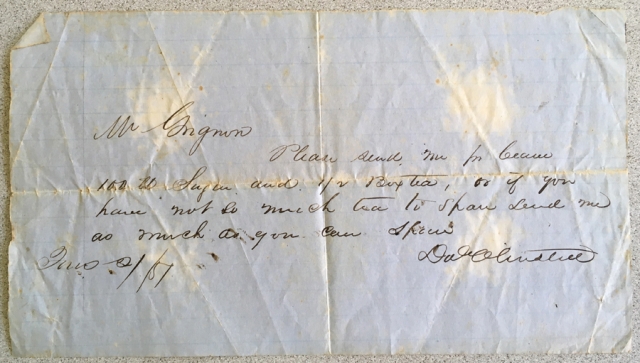 Mr Grignon
Please send me pr
100 lb Sugar and 1/2 Box tea, or if you
have not so much tea to spare send me
as much as you can spare